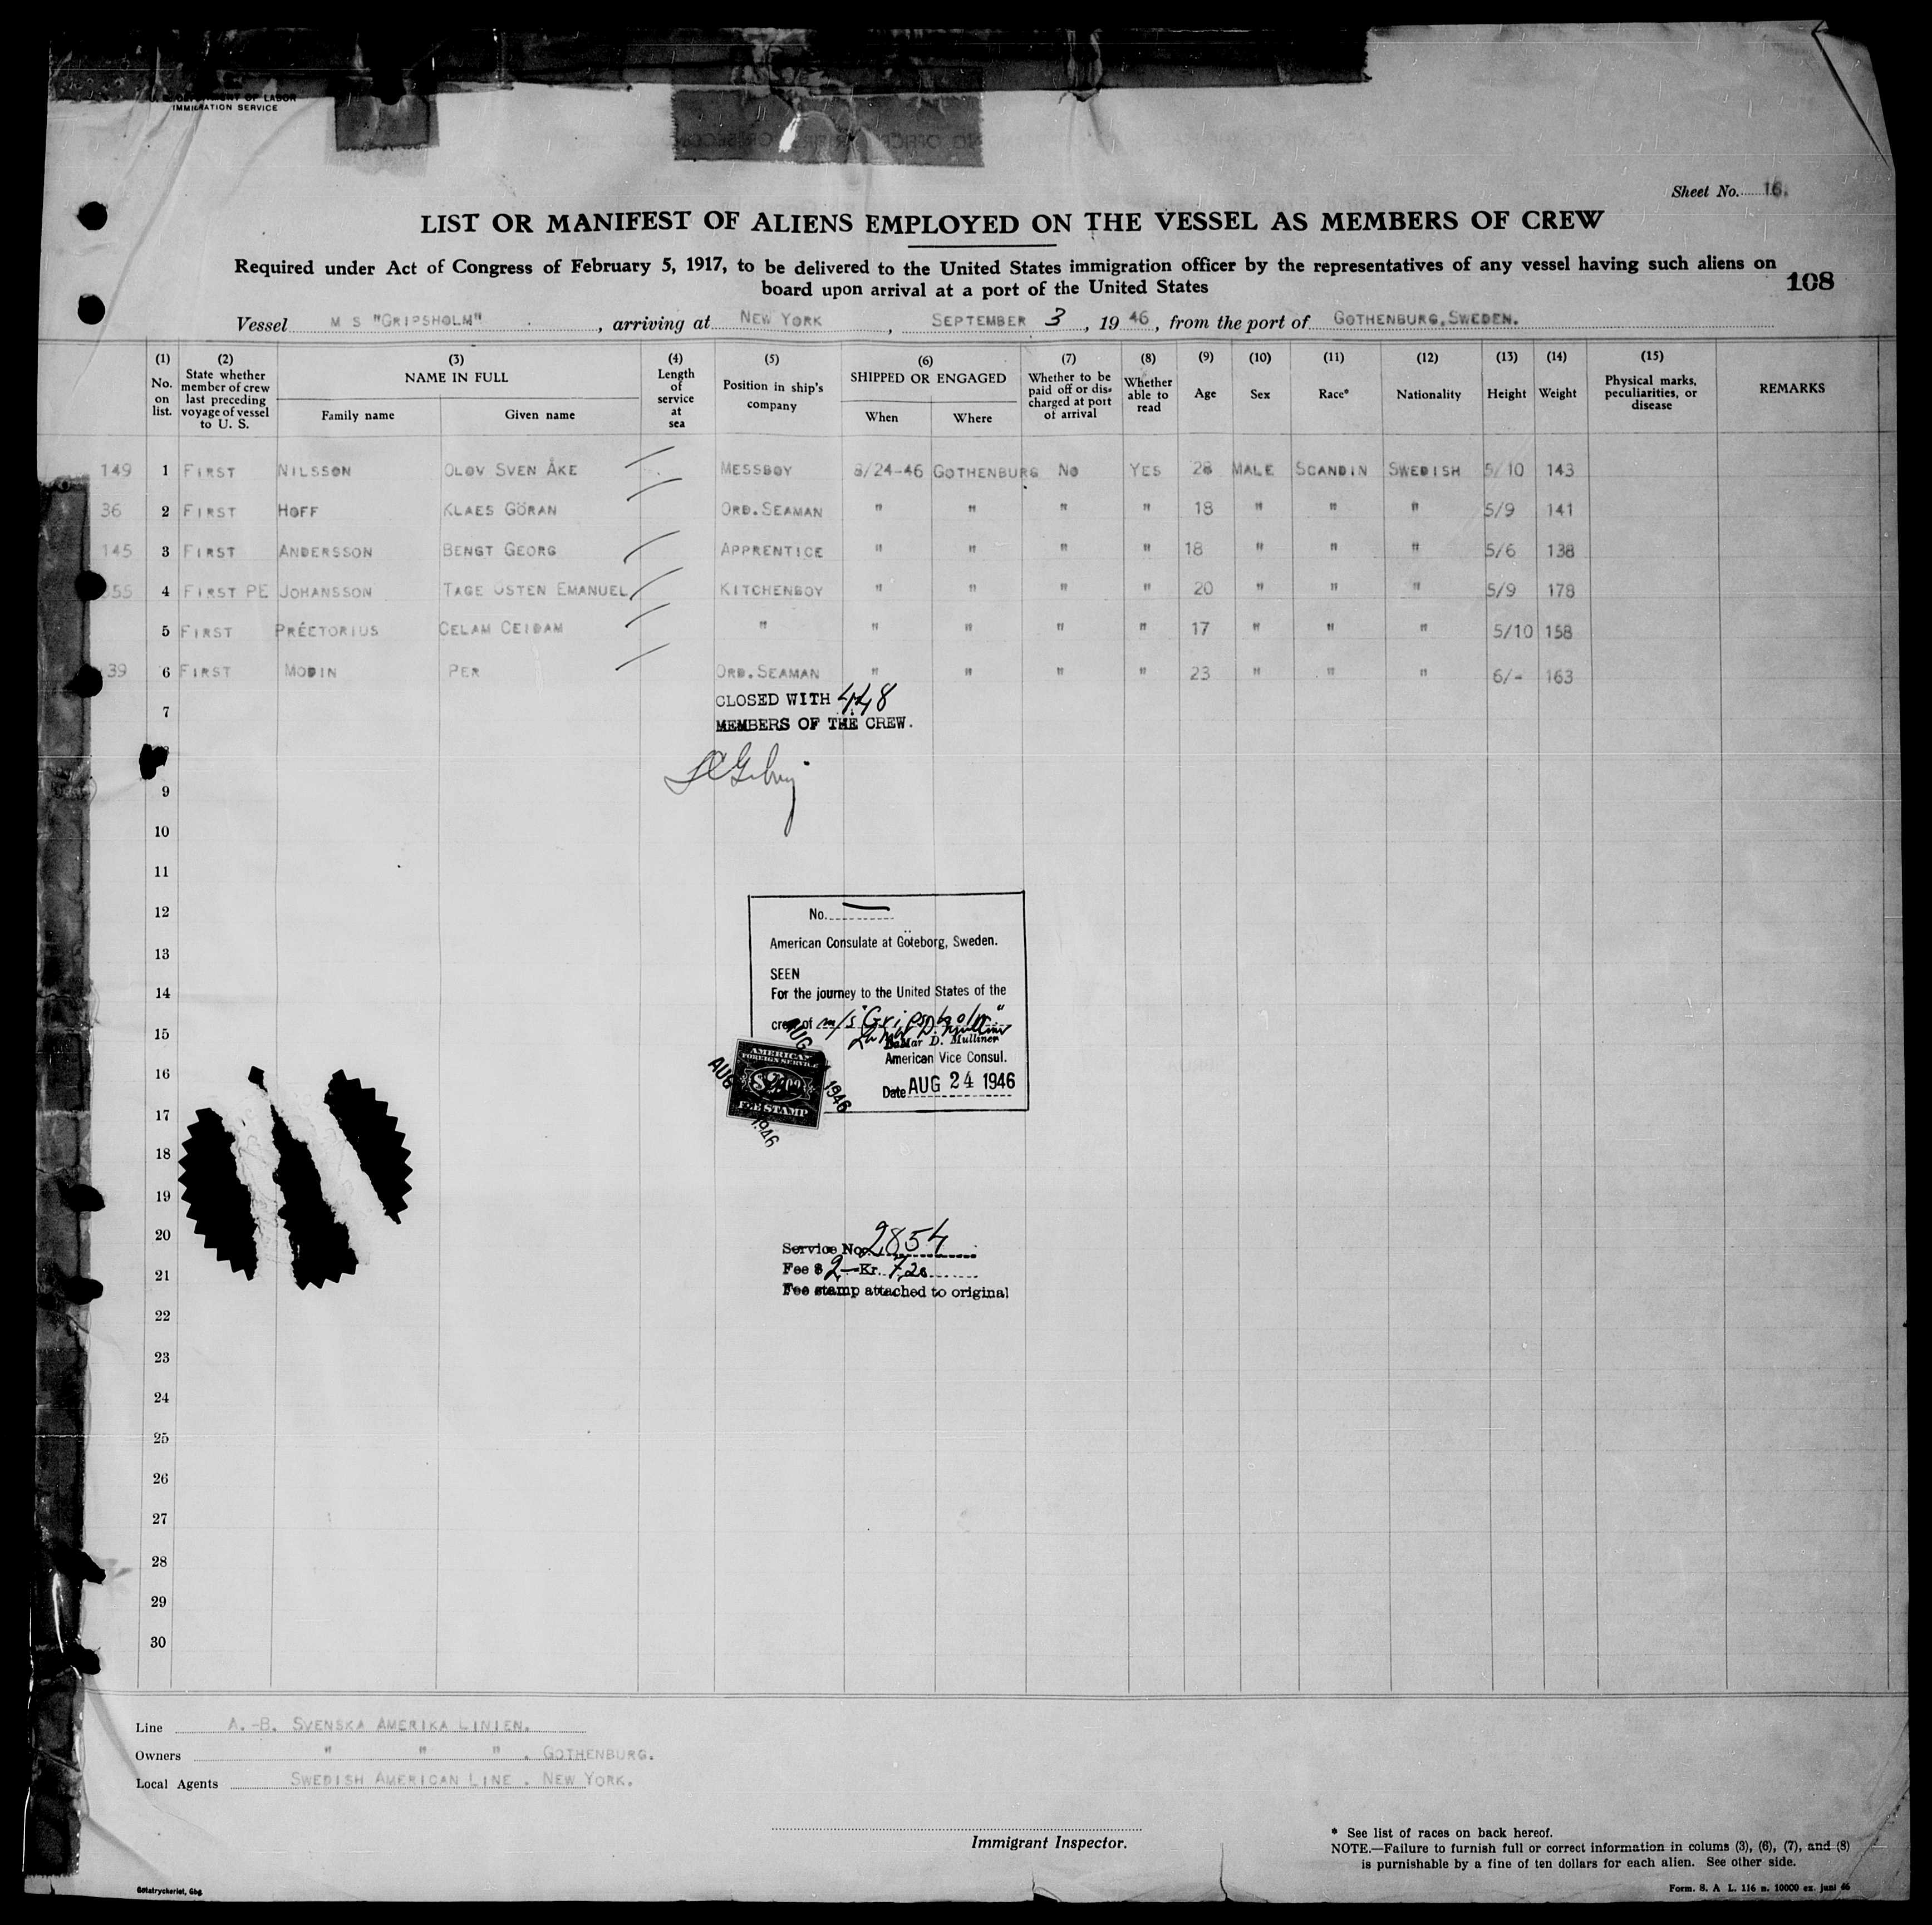 U. S. DEPARTMENT OF LABOR
IMMIGRATION SERVICE
Sheet No. 16.
LIST OR MANIFEST OF ALIENS EMPLOYED ON THE VESSEL AS MEMBERS OF CREW
Required under Act of Congress of February 5, 1917, to be delivered to the United States immigration officer by the representatives of any vessel having such aliens on
board upon arrival at a port of the United States
108
Vessel M S "GRIPSHOLM", arriving at NEW YORK, SEPTEMBER 3, 1946, from the port of GOTHENBURG, SWEDEN.
(1) No. on list. (2) State whether member of crew last preceding voyage of vessel to U. S. (3) NAME IN FULL Family name Given name (4) Length of service at sea (5) Position in ship's company (6) SHIPPED OR ENGAGED When Where (7) Whether to be paid off or discharged at port of arrival (8) Whether able to read (9) Age (10) Sex (11) Race* (12) Nationality (13) Height (14) Weight (15) Physical marks, peculiarities, or disease REMARKS
149 1 FIRST NILSSON OLOV SVEN ÅKE MESSBOY 8/24-46 GOTHENBURG NO YES 28 MALE SCANDIN SWEDISH 5/10 143
36 2 FIRST HOFF KLAES GÖRAN ORD. SEAMAN " " " " 18 " " " 5/9 141
145 3 FIRST ANDERSSON BENGT GEORG APPRENTICE " " " " 18 " " " 5/6 138
55 4 FIRST PE JOHANSSON TAGE OSTEN EMANUEL KITCHENBOY " " " " 20 " " " 5/9 178
5 FIRST PRÉETORIUS CELAM CEIDAM " " " " " 17 " " " 5/10 158
39 6 FIRST MODIN PER ORD. SEAMAN " " " " 23 " " " 6/- 163
CLOSED WITH 448
7
MEMBERS OF THE CREW.
9
10
11
12
13
14
15
16
17
18
19
20
21
22
23
24
25
26
27
28
29
30
No.
American Consulate at Göteborg, Sweden.
SEEN
For the journey to the United States of the
crew of m/s "Gripsholm"
LaMar D. Mulliner
LaMar D. Mulliner
American Vice Consul.
Date AUG 24 1946
AMERICAN
FOREIGN SERVICE
$2.00
FEE STAMP
AUG 1946
AUG 1946
Service No. 2854
Fee $ 2— Kr. 7,20
Fee stamp attached to original
Line A.-B. SVENSKA AMERIKA LINIEN.
Owners " " " . GOTHENBURG.
Local Agents SWEDISH AMERICAN LINE . NEW YORK.
Immigrant Inspector.
* See list of races on back hereof.
NOTE.—Failure to furnish full or correct information in colums (3), (6), (7), and (8)
is purnishable by a fine of ten dollars for each alien. See other side.
Götatryckeriet, Gbg
Form. S. A L. 116 n. 10000 ex. juni 46